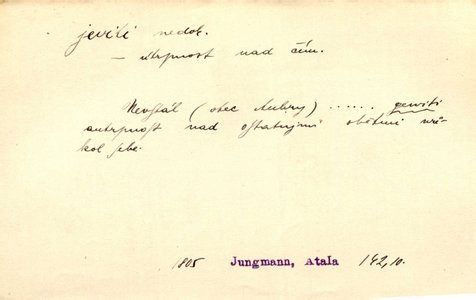 jeviti nedok.
— útrpnost nad čím.
Nevstál (otec Aubry) ...... gewiti
autrpnost nad ostatnjmi obětmi wů-
kol sebe.
1805 Jungmann, Atala 142,10.